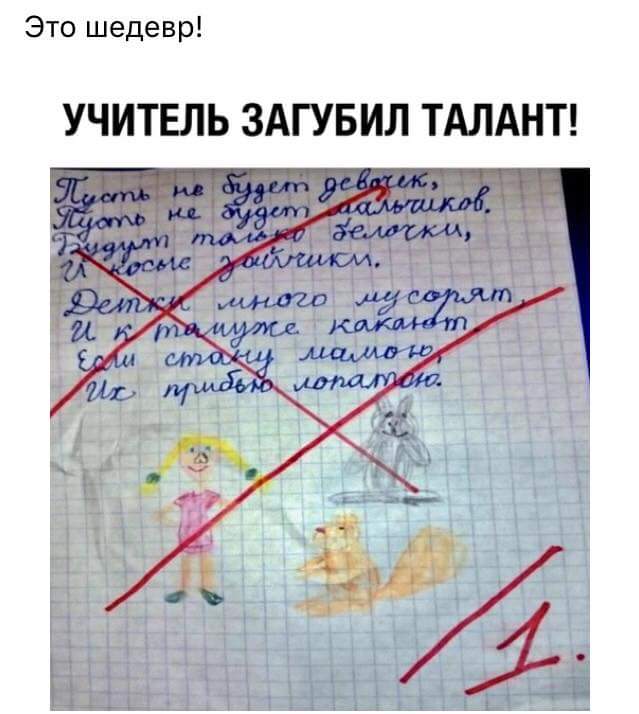 Это шедевр!
УЧИТЕЛЬ ЗАГУБИЛ ТАЛАНТ!
Пусть не будет девочек,
Пусть не будет мальчиков.
Будут только белочки,
И косые зайчики.
Детки много мусорят
И к тамуже какают
Если стану мамою,
Их прибью лопатою.
1.